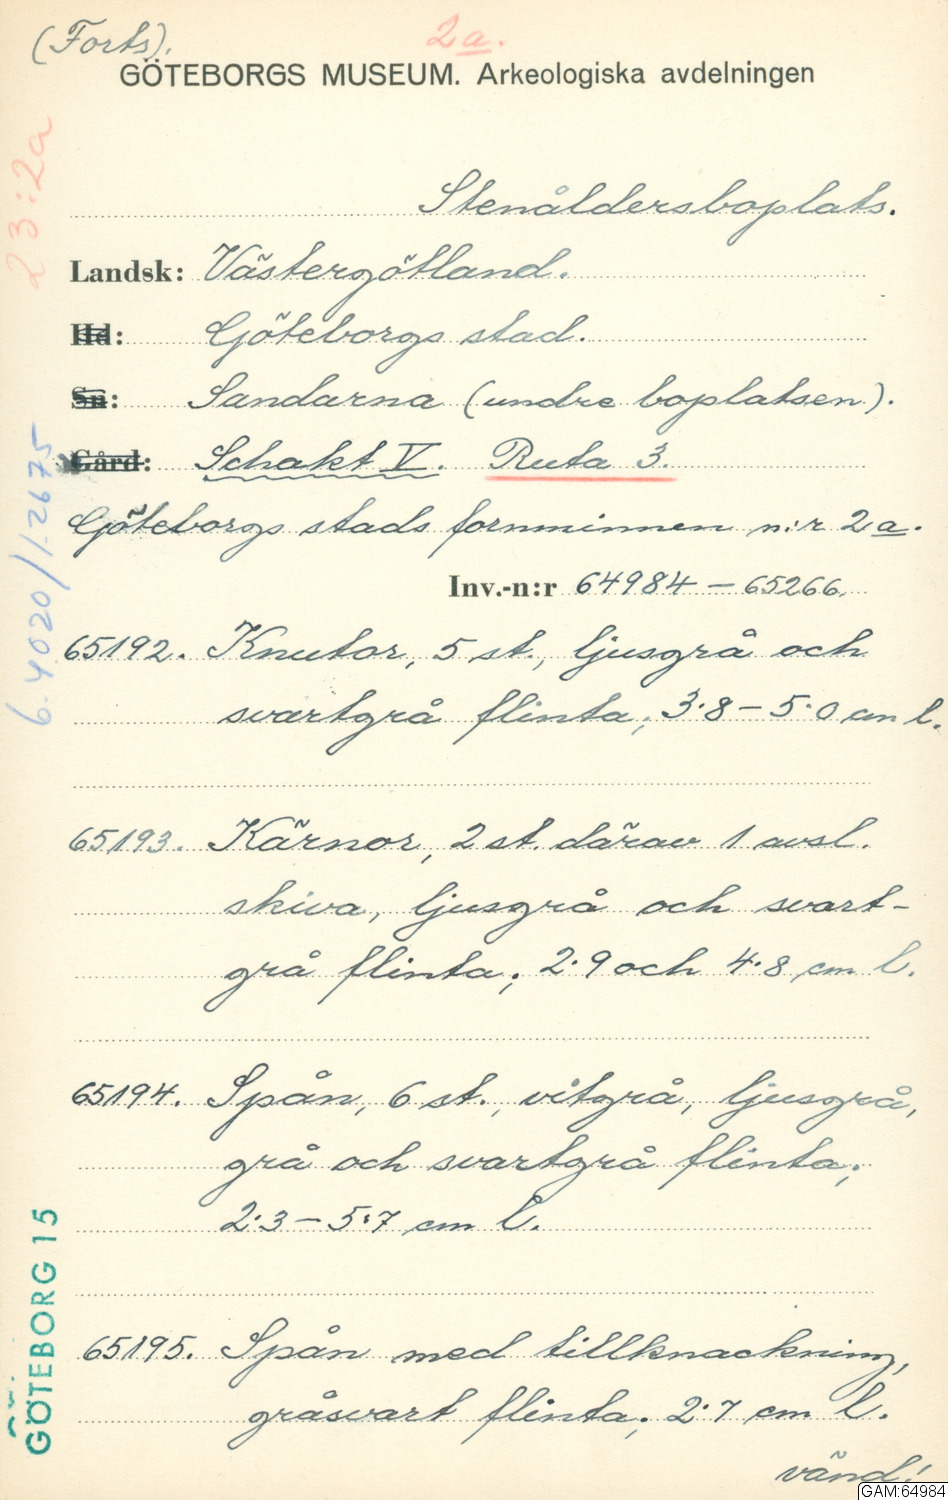 (Forts).
2a.
GÖTEBORGS MUSEUM. Arkeologiska avdelningen
23:2a
Stenåldersboplats.
Landsk: Västergötland.
Hd: Göteborgs stad.
Sn: Sandarna (undre boplatsen).
Gård: Schakt V. Ruta 3.
Göteborgs stads fornminnen n:r 2a.
Inv.-n:r 64984 – 65266.
6.4020/1.2675
65192. Knutor, 5 st., ljusgrå och
svartgrå flinta; 3·8 – 5·0 cm l.
65193. Kärnor, 2 st. därav 1 avsl.
skiva, ljusgrå och svart-
grå flinta; 2·9 och 4·8 cm l.
65194. Spån, 6 st., vitgrå, ljusgrå,
grå och svartgrå flinta;
2·3 – 5·7 cm l.
65195. Spån med tillknackning,
gråsvart flinta; 2·7 cm l.
vänd!
GÖTEBORG 15
GAM:64984